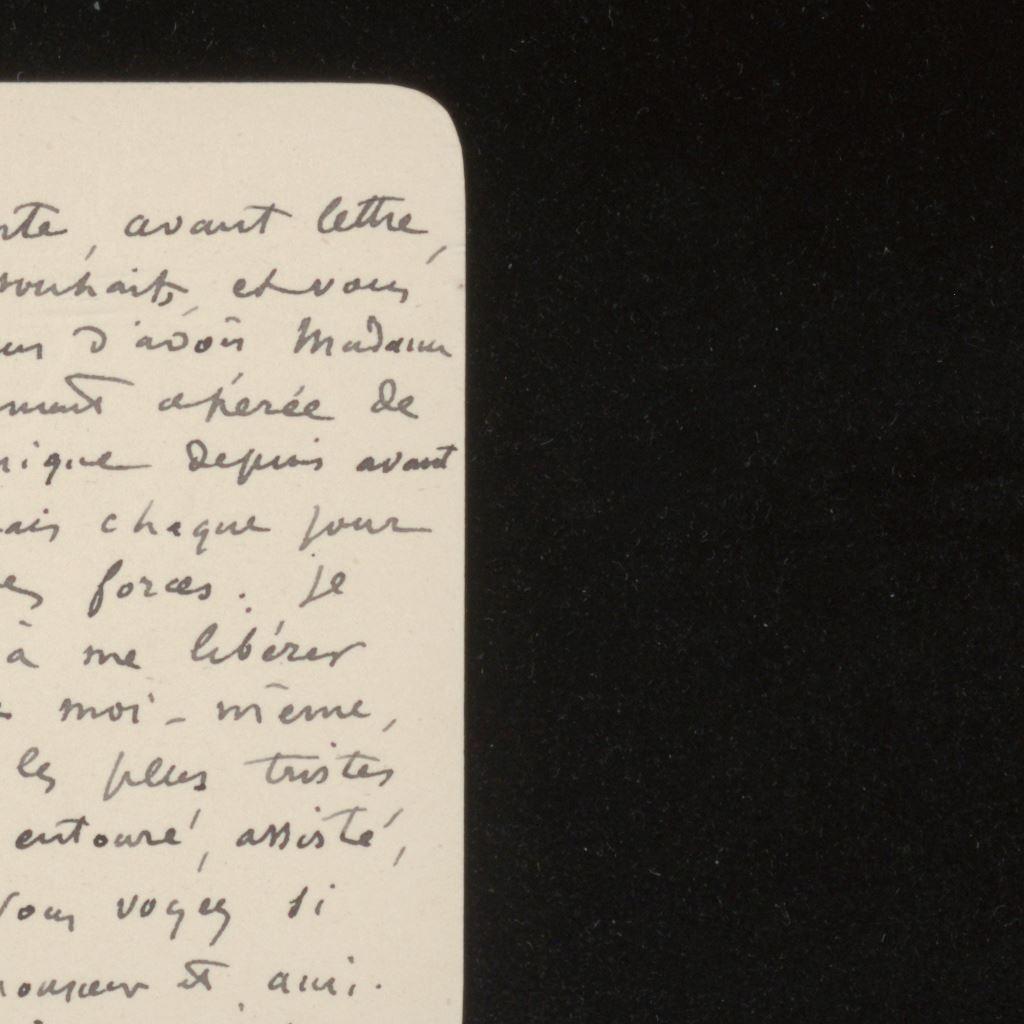 avant lettre,
souhaits, et vous
d'avoir Madame
opérée de
depuis avant
chaque jour
forces. Je
à me libérer
moi-même,
les plus tristes
entouré, assisté,
vous voyez si
et ami.